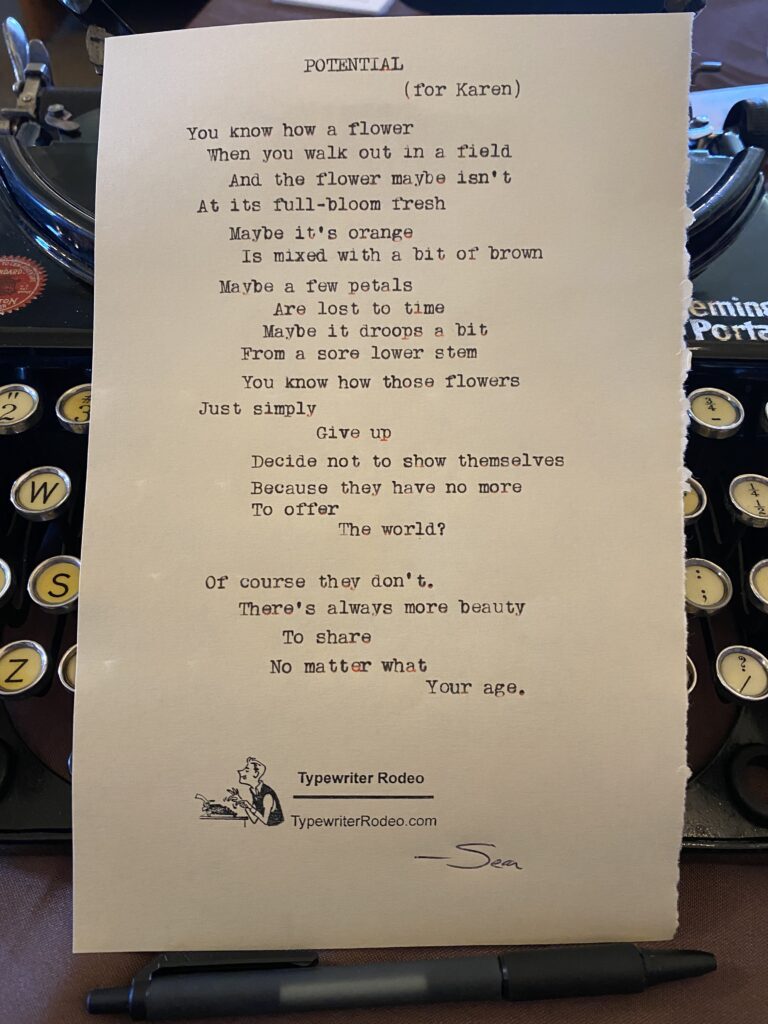 POTENTIAL
(for Karen)
You know how a flower
When you walk out in a field
And the flower maybe isn't
At its full-bloom fresh
Maybe it's orange
Is mixed with a bit of brown
Maybe a few petals
Are lost to time
Maybe it droops a bit
From a sore lower stem
You know how those flowers
Just simply
Give up
Decide not to show themselves
Because they have no more
To offer
The world?
Of course they don't.
There's always more beauty
To share
No matter what
Your age.
Typewriter Rodeo
TypewriterRodeo.com
—Sean
" 2
3
W
S
Z
; :
? /